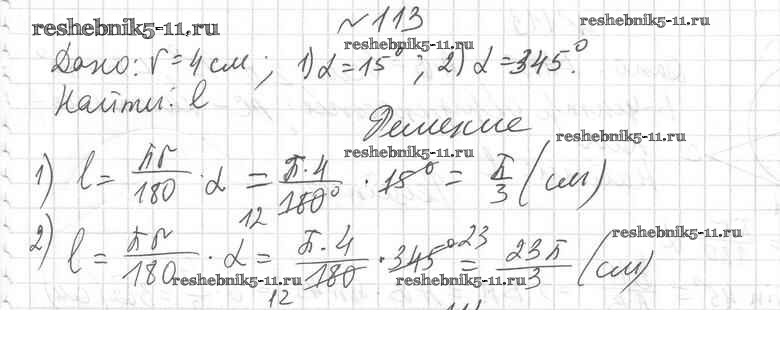 №113
reshebnik5-11.ru
reshebnik5-11.ru
reshebnik5-11.ru
Дано: r = 4 см; 1) α = 15°; 2) α = 345°.
Найти: l
Решение
reshebnik5-11.ru
reshebnik5-11.ru
1) l = πr/180 · α = π·4/180° · 15° = π/3 (см)
12
reshebnik5-11.ru
2) l = πr/180 · α = π·4/180 · 345° 23 = 23π/3 (см)
reshebnik5-11.ru
reshebnik5-11.ru
12